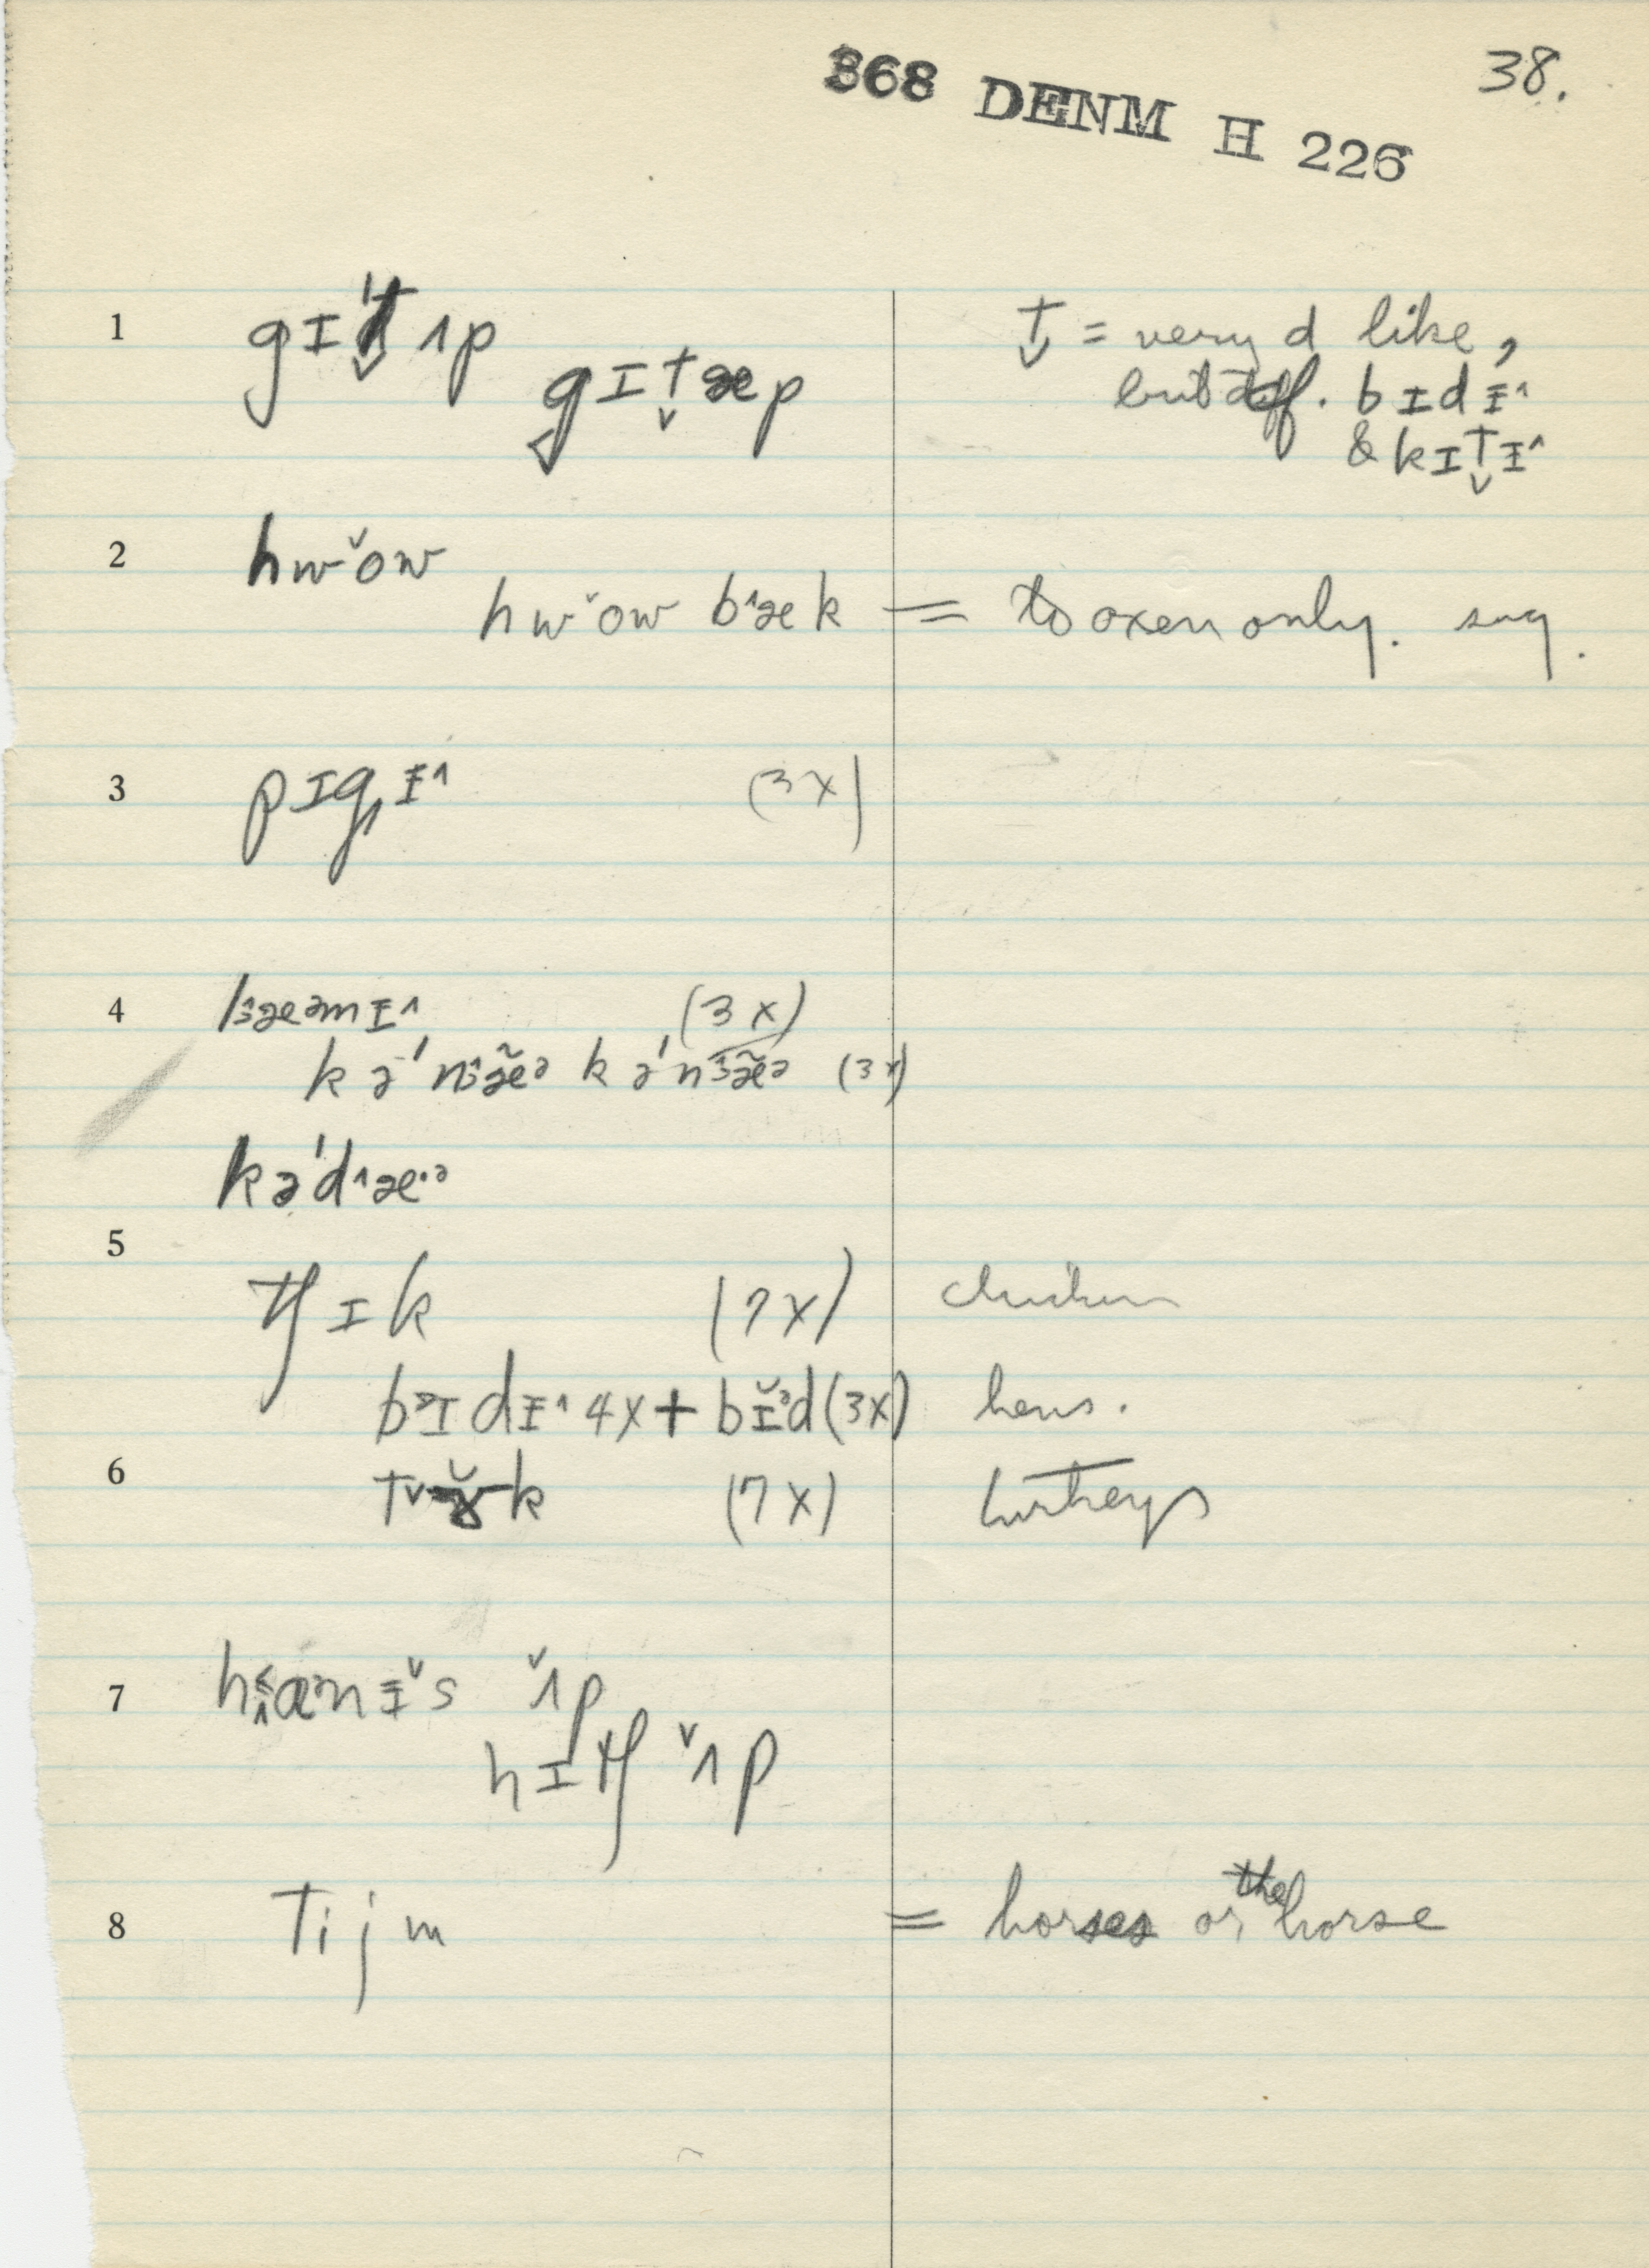 368 DENM H 226
38.
1 gɪt̬ʌp
gɪt̬æp
t̬ = very d like,
but diff. bɪdɪ^
& kɪt̬ɪ^
2 hwˇow
hwˇow b^æk = to oxen only. sug.
3 pɪgɪ^ (3x)
4 (3x)
(3x)
kə'd^æ·ᵊ
5 tʃɪk (7x) chicken
bᵊɪdɪ^ 4x + bɪ̌ᵊd (3x) hens.
6 (7x) turkeys
7 ˇʌp
hɪtʃ ˇʌp
8 Tijm = horses or the horse